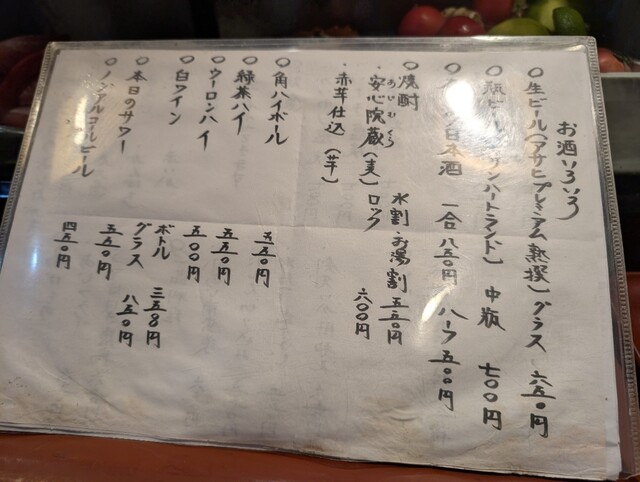 お酒いろいろ
○生ビール(アサヒプレミアム熟撰)グラス 六五〇円
○瓶ビール(キリンハートランド) 中瓶 七〇〇円
日本酒 一合 八五〇円 ハーフ 五〇〇円
○焼酎 水割・お湯割 五五〇円
・安心院蔵(麦) ロック 六〇〇円
あじむくら
・赤芋仕込(芋)
○角ハイボール 五五〇円
○緑茶ハイ 五五〇円
○ウーロンハイ 五〇〇円
○白ワイン ボトル 三五〇〇円
グラス 八五〇円
○本日のサワー 五五〇円
○ノンアルコールビール 四五〇円